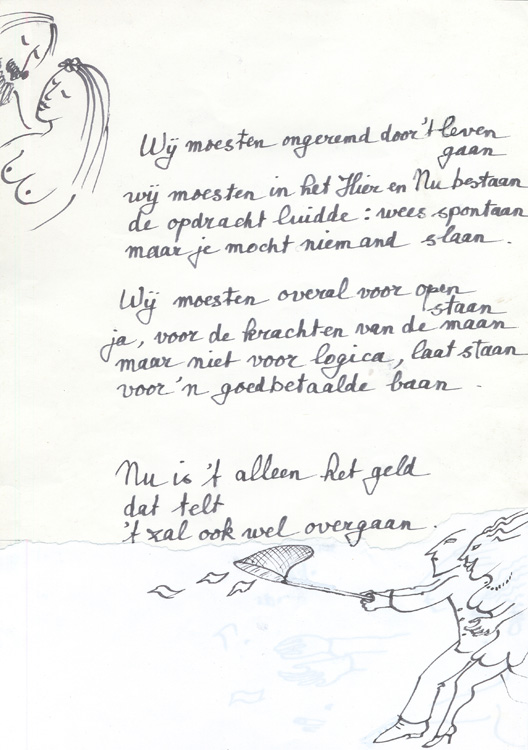 Wij moesten ongeremd door 't leven
gaan
wij moesten in het Hier en Nu bestaan
de opdracht luidde: wees spontaan
maar je mocht niemand slaan.
Wij moesten overal voor open
staan
ja, voor de krachten van de maan
maar niet voor logica, laat staan
voor 'n goedbetaalde baan.
Nu is 't alleen het geld
dat telt
't zal ook wel overgaan.